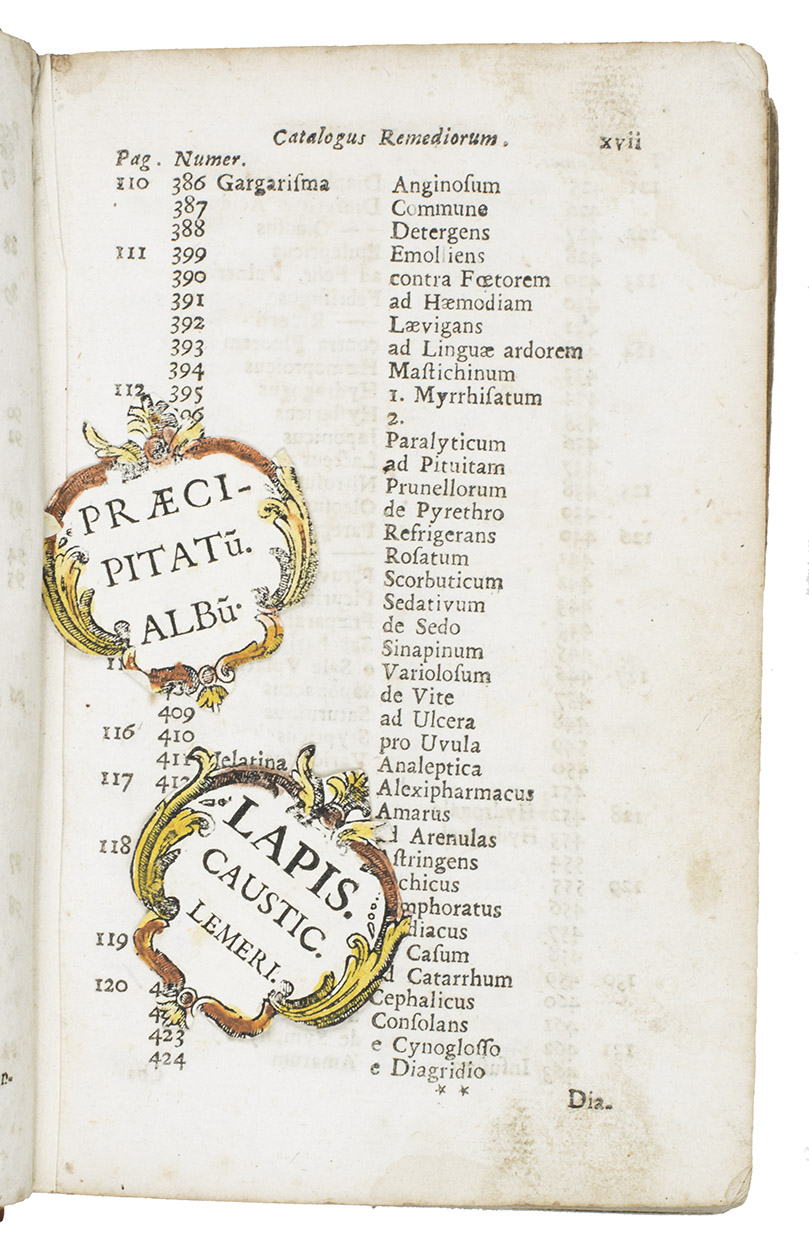 Catalogus Remediorum. xvii
Pag. Numer.
110 386 Gargariſma Anginoſum
387 Commune
388 Detergens
111 399 Emolliens
390 contra Fœtorem
391 ad Hæmodiam
392 Lævigans
393 ad Linguæ ardorem
394 Maſtichinum
112 395 1. Myrrhiſatum
396 2.
Paralyticum
ad Pituitam
Prunellorum
de Pyrethro
Refrigerans
Roſatum
Scorbuticum
Sedativum
de Sedo
Sinapinum
Varioloſum
de Vite
409 ad Ulcera
116 410 pro Uvula
411 Jelatina Analeptica
117 412 Alexipharmacus
Amarus
ad Arenulas
118 Aſtringens
chicus
mphoratus
diacus
119 Caſum
d Catarrhum
120 Cephalicus
Conſolans
423 e Cynogloſſo
424 e Diagridio
* *
Dia-
PRÆCI-
PITATŪ.
ALBŪ.
LAPIS.
CAUSTIC.
LEMERI.